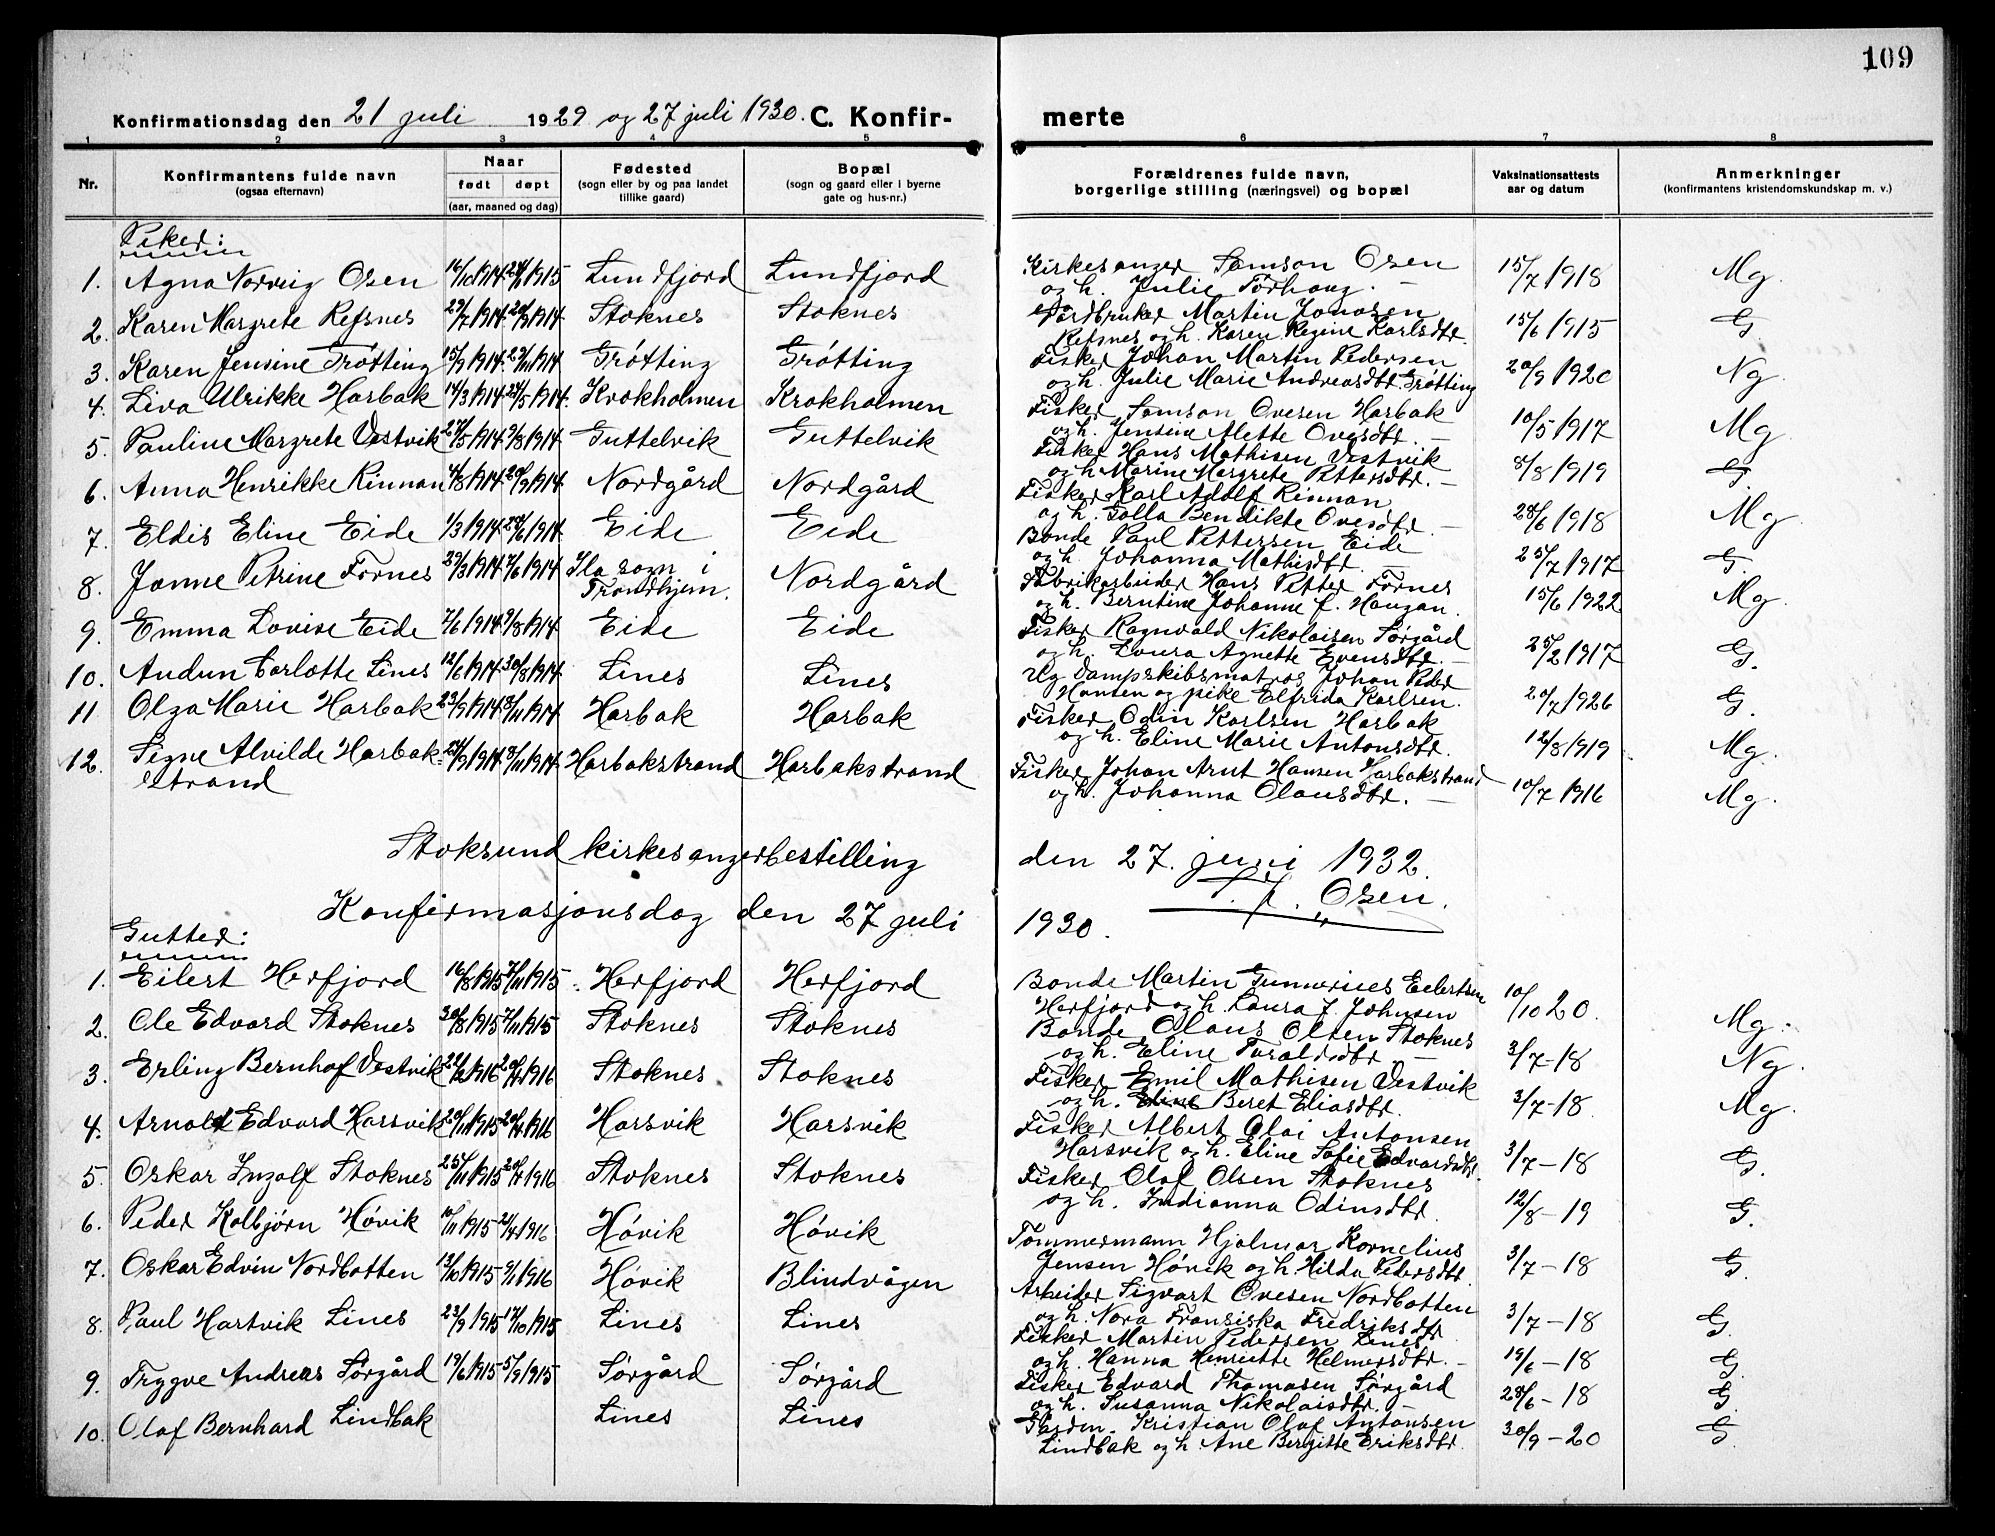 109
Konfirmationsdag den 21 juli 1929 og 27 juli 1930. C. Konfir-merte
1 2 3 4 5 6 7 8
Nr.
Konfirmantens fulde navn
(ogsaa efternavn)
Naar
født døpt
(aar, maaned og dag)
Fødested
(sogn eller by og paa landet
tillike gaard)
Bopæl
(sogn og gaard eller i byerne
gate og hus-nr.)
Forældrenes fulde navn,
borgerlige stilling (næringsvei) og bopæl
Vaksinationsattests
aar og datum
Anmerkninger
(konfirmantens kristendomskundskap m. v.)
Piker:
1. Agna Norveig Osen 16/10 1914 24/1 1915 Lundfjord Lundfjord Kirkesanger Samson Osen 15/7 1918 Mg.
og h. Julie Torhaug. —
2. Karen Margrete Refsnes 29/7 1914 20/9 1914 Stoknes Stoknes Gårdbruker Martin Jonasen 15/6 1915 G
Refsnes og h. Karen Regine Karlsdtr.
3. Karen Jensine Trøtting 15/9 1914 29/11 1914 Trøtting Trøtting Fisker Johan Martin Pedersen 20/9 1920 Ng.
og h. Julie Marie Andreasdtr. Trøtting
4. Liva Ulrikke Harbak 14/3 1914 24/5 1914. Krokholmen Krokholmen Fisker Samson Ovesen Harbak 10/5 1917 Mg
og h. Jensine Alette Ovesdtr. —
5. Pauline Margrete Vestvik 27/5 1914 9/8 1914 Guttelvik Guttelvik Fisker Hans Mathisen Vestvik 8/8 1919 G.
og h. Marine Margrete Pettersdtr. —
6. Anna Henrikke Rinnan 4/8 1914 20/9 1914 Nordgård Nordgård Fisker Karl Adolf Rinnan 28/6 1918 Mg
og h. Golla Bendikte Ovesdtr —
7. Eldis Eline Eide 1/3 1914 28/6 1914. Eide Eide Bonde Paul Pettersen Eide 25/7 1917 G.
og h. Johanna Mathisdtr. —
8. Janne Petrine Fornes 29/3 1914 7/6 1914 Ila sogn i Nordgård Fabrikarbeider Hans Petter Fornes 15/6 1922 Mg.
Trondhjem. og h. Berntine Johanne f. Haugan.
9. Emma Lovise Eide 7/6 1914 9/8 1914 Eide Eide Fisker Ragnvald Nikolaisen Sørgård 25/2 1917 G.
og h. Laura Agnette Evensdtr. —
10. Audun Carlotte Lines 12/6 1914 30/8 1914 Lines Lines Ug. Dampskibsmatros Johan Peder 20/7 1926 G.
Hansen og pike Elfrida Karlsen.
11 Olga Marie Harbak 23/9 1914 8/11 1914 Harbak Harbak Fisker Odin Karlsen Harbak 12/8 1919 Mg.
og h. Eline Marie Antonsdtr.
12. Signe Alvilde Harbak- 24/9 1914 8/11 1914 Harbakstrand Harbakstrand Fisker Johan Arnt Hansen Harbakstrand 10/7 1916 Mg.
strand og h. Johanna Olausdtr. —
Stoksund kirkesangerbestilling den 27. juni 1932.
Osen.
Konfirmasjonsdag den 27 juli 1930.
Gutter:
1. Eilert Herfjord 16/8 1915 7/11 1915 Herfjord Herfjord Bonde Martin Gunnerius Eilertsen 10/10 20. Mg.
Herfjord og h. Laura J. Johnsen
2. Ole Edvard Stoknes 30/8 1915 7/11 1915 Stoknes Stoknes Bonde Olaus Olsen Stoknes 3/7-18 Ng.
og h. Eline Toraldsdtr. —
3. Erling Bernhof Vestvik 22/2 1916 20/4 1916 Stoknes Stoknes Fisker Emil Mathisen Vestvik 3/7-18. Mg.
og h. Eline Beret Eliasdtr.
4. Arnold Edvard Harsvik 20/11 1915 20/4 1916 Harsvik Harsvik Fisker Albert Olai Antonsen 3/7-18 G.
Harsvik og h. Eline Sofie Edvardsdtr.
5. Oskar Ingolf Stoknes 25/11 1915 20/4 1916 Stoknes Stoknes Fisker Olaf Olsen Stoknes 12/8-19 G.
og h. Indianna Odinsdtr.
6. Peder Kolbjørn Høvik 10/11 1915 2/4 1916 Høvik Høvik Tømmermann Hjalmar Kornelius 3/7-18 G.
Jensen Høvik og h. Hilda Pedersdtr.
7. Oskar Edvin Nordbotten 13/10 1915 9/1 1916 Høvik Blindvågen Arbeider Sigvart Ovesen Nordbotten 3/7-18 G.
og h. Nora Fransiska Fredriksdtr
8. Paul Hartvik Lines 23/9 1915 17/10 1915 Lines Lines Fisker Martin Pedersen Lines 19/6-18 G.
og h. Hanna Henriette Helmersdtr. —
9. Trygve Andreas Sørgård 19/6 1915 5/9 1915 Sørgård Sørgård Fisker Edvard Thomasen Sørgård 28/6-18 G.
og h. Susanna Nikolaisdtr. —
10. Olaf Bernhard Lindbak Lines Lines Gårdm. Kristian Olaf Antonsen 30/9-20 G.
Lindbak og h. Ane Bergitte Eriksdtr.